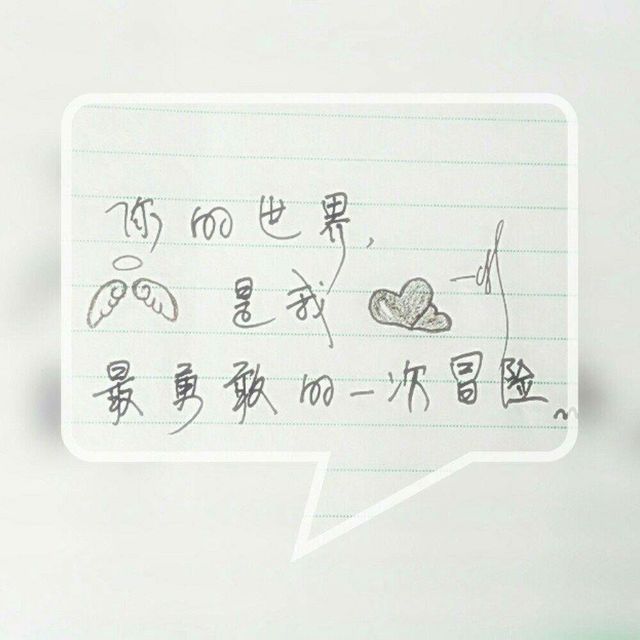 你的世界，
是我
最勇敢的一次冒险~